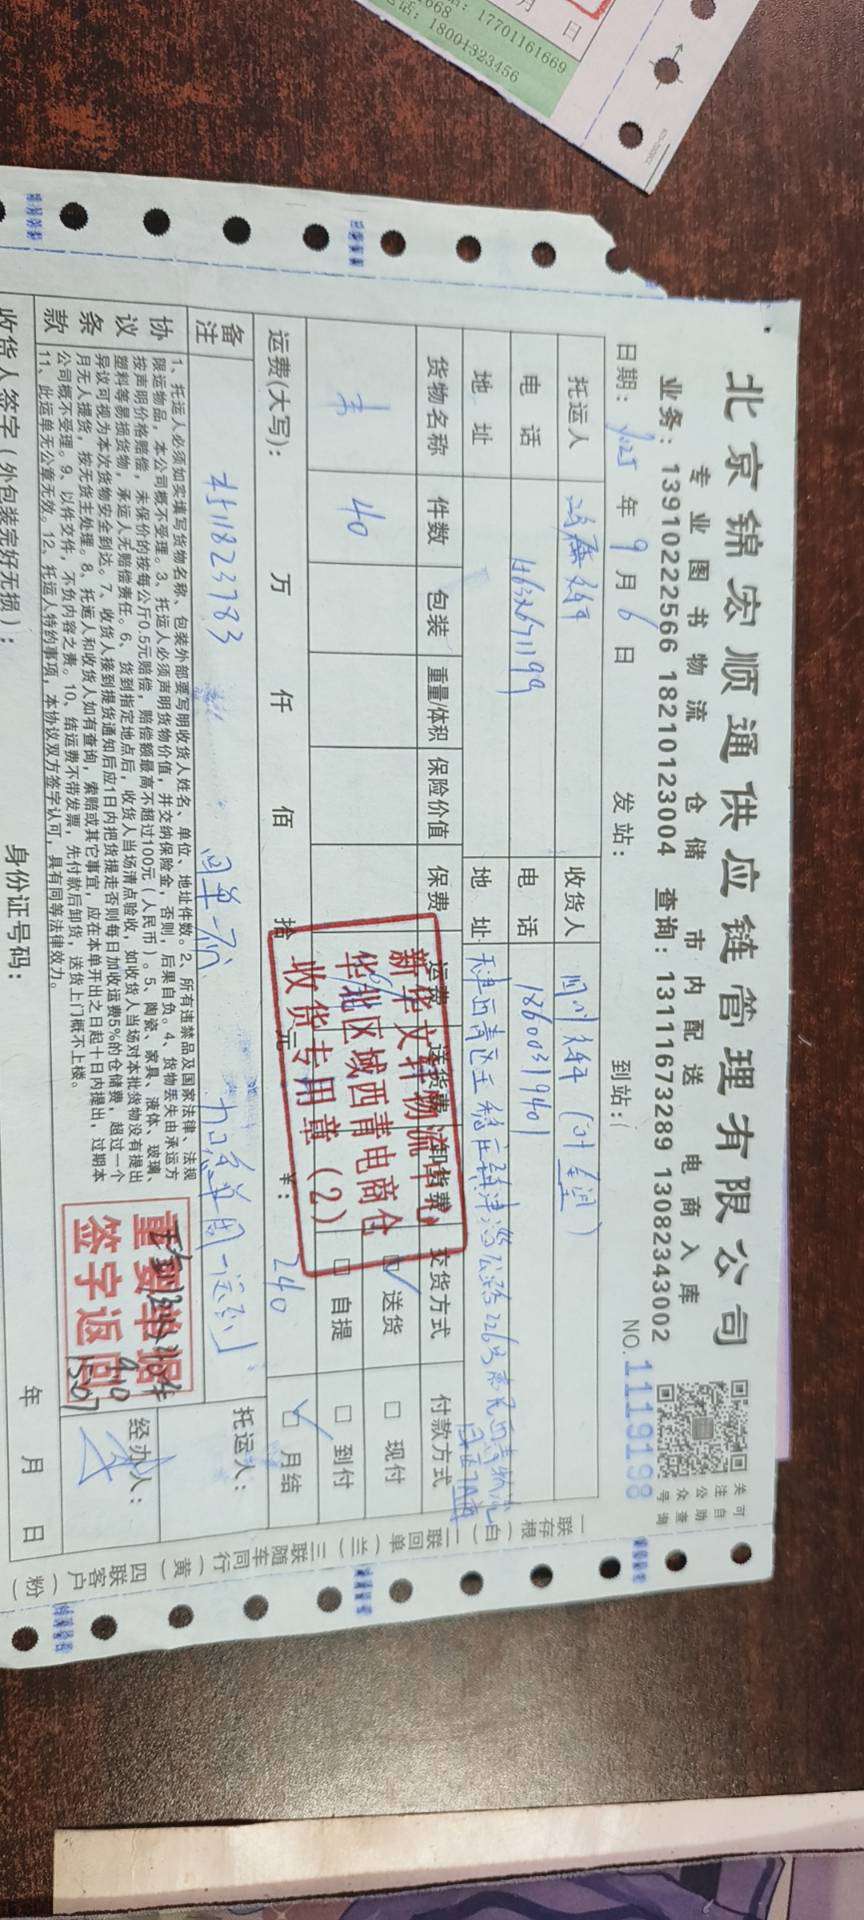 北京锦宏顺通供应链管理有限公司
专业图书物流 仓储 市内配送 电商入库
业务：13910222566 18210123004 查询：13111673289 13082343002
日期：2025年9月6日 发站： 到站： NO.1119198
托运人 收货人
电话 电话 18600319401
地址 地址 天津西青区
货物名称 件数 包装 重量/体积 保险价值 保费 运费 送货费 卸货费 交货方式 付款方式
书 40 送货 现付
自提 到付
运费(大写)： 万 仟 佰 拾 元 ￥：240 月结
备注 回单一份
托运人：
协议条款
1、托运人必须如实填写货物名称、包装外部要写明收货人姓名、单位、地址件数。2、所有违禁品及国家法律、法规
限运物品，本公司概不受理。3、托运人必须声明货物价值，并交纳保险金，否则，后果自负。4、货物丢失由承运方
按声明价格赔偿，未保价的按每公斤0.5元赔偿，赔偿额最高不超过100元（人民币）。5、陶瓷、家具、液体、玻璃、
塑料等易损货物，承运人无赔偿责任。6、货到指定地点后，收货人当场清点验收，如收货人当场对本批货物没有提出
异议可视为本次货物安全到达。7、收货人接到提货通知后应1日内把货提走否则每日加收运费5%的仓储费，超过一个
月无人提货，按无货主处理。8、托运人和收货人如有查询，索赔或其它事宜，应在本单开出之日起十日内提出，过期本
公司概不受理。9、以件交件，不负内容之责。10、结运费不带发票，先付款后卸货，送货上门概不上楼。
11、此运单无公章无效。12、托运人特约事项，本协议双方签字认可，具有同等法律效力。
经办人：
收货人签字（外包装完好无损）： 身份证号码： 年 月 日
新华文轩物流中心
华北区域西青电商仓
收货专用章（2）
重要单据
签字返回
一联存根（白） 二联回单（兰） 三联随车同行（黄） 四联客户（粉）
关注公众号
可自助查询
17701161669
18001323456
月 日